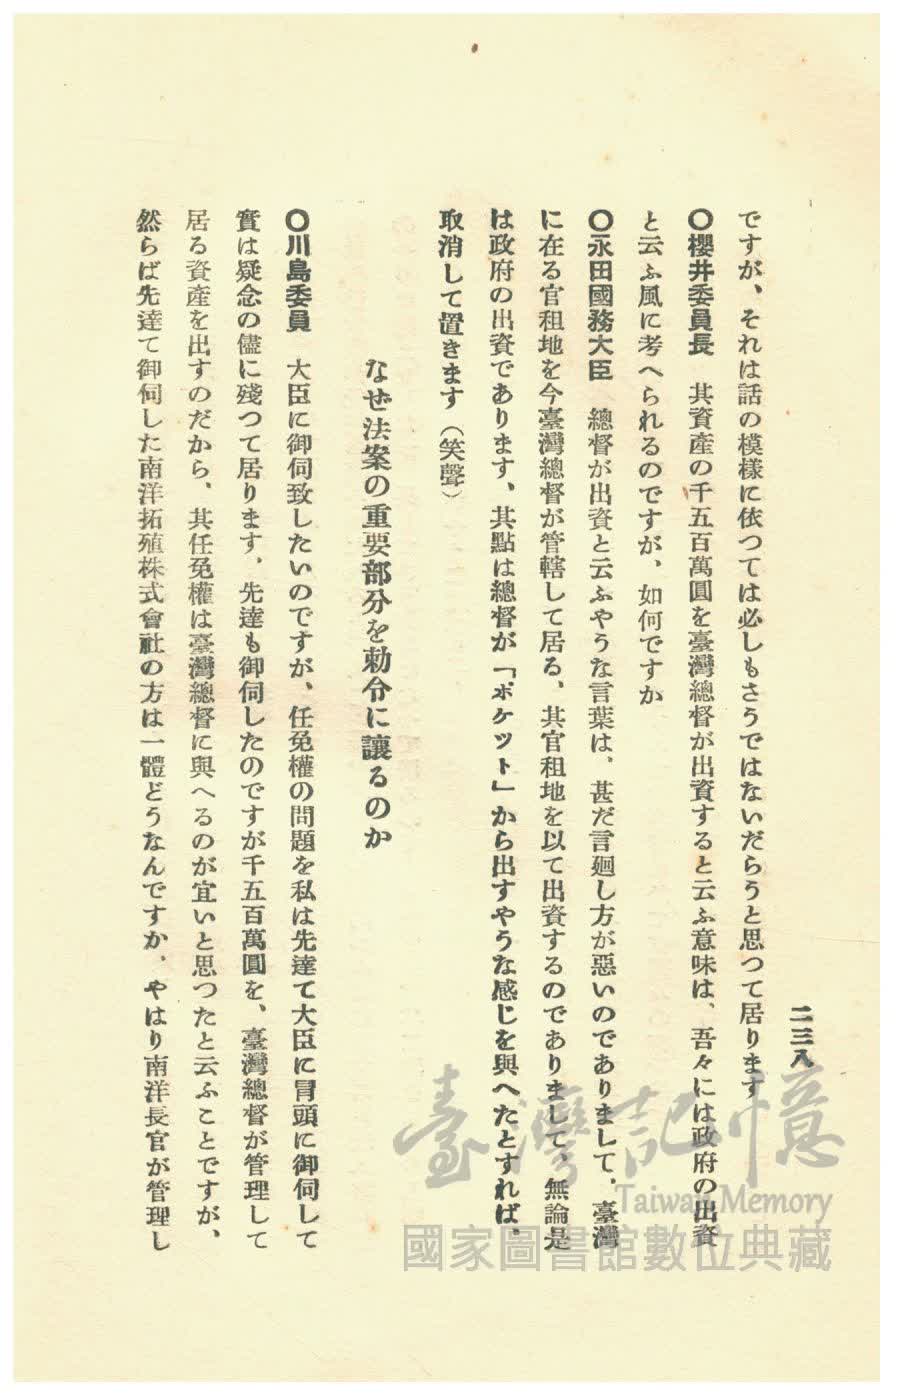 二三八
ですが、それは話の模樣に依つては必しもさうではないだらうと思つて居ります
〇櫻井委員長　其資産の千五百萬圓を臺灣總督が出資すると云ふ意味は、吾々には政府の出資
と云ふ風に考へられるのですが、如何ですか
〇永田國務大臣　總督が出資と云ふやうな言葉は、甚だ言廻し方が惡いのでありまして、臺灣
に在る官租地を今臺灣總督が管轄して居る、其官租地を以て出資するのでありまして、無論是
は政府の出資であります、其點は總督が「ポケット」から出すやうな感じを與へたとすれば、
取消して置きます（笑聲）
なぜ法案の重要部分を勅令に讓るのか
〇川島委員　大臣に御伺致したいのですが、任免權の問題を私は先達て大臣に冒頭に御伺して
實は疑念の儘に殘つて居ります、先達も御伺したのですが千五百萬圓を、臺灣總督が管理して
居る資產を出すのだから、其任免權は臺灣總督に與へるのが宜いと思つたと云ふことですが、
然らば先達て御伺した南洋拓殖株式會社の方は一體どうなんですか、やはり南洋長官が管理し
臺灣記憶
Taiwan Memory
國家圖書館數位典藏